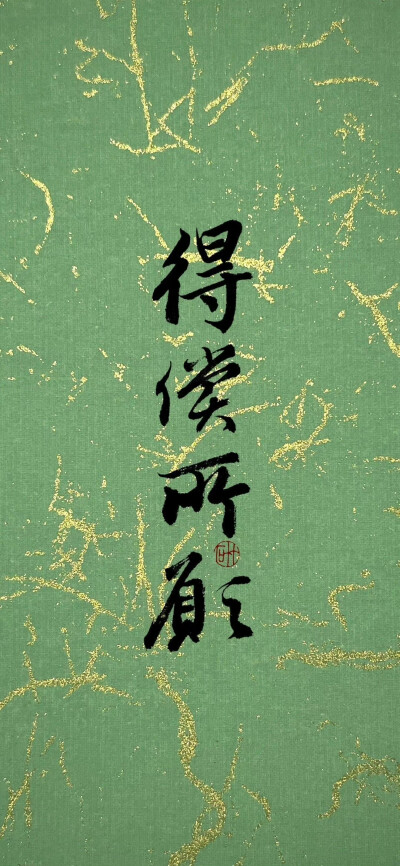 得偿所愿